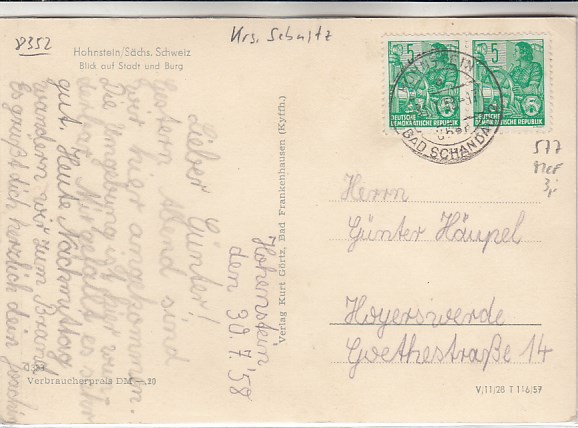 8352
Krs. Sebnitz
Hohnstein/Sächs. Schweiz
Blick auf Stadt und Burg
Lieber Günter!
Gestern Abend sind
wir hier angekommen.
Die Umgebung ist
Mir gefällt es sehr
gut. Heute Nachmittag
wandern wir zum Brand
Es grüßt dich herzlich dein Joachim
Hohenstein
den 30.7.58
Verlag Kurt Görtz, Bad Frankenhausen (Kyffh.)
5 5
DEUTSCHE DEMOKRATISCHE REPUBLIK
5 5
DEUTSCHE DEMOKRATISCHE REPUBLIK
HOHNSTEIN
BAD SCHANDAU
577
3,-
Herrn
Günter Häupel
Hoyerswerde
Goethestraße 14
Verbraucherpreis DM —.20
V/11/28 T 116/57